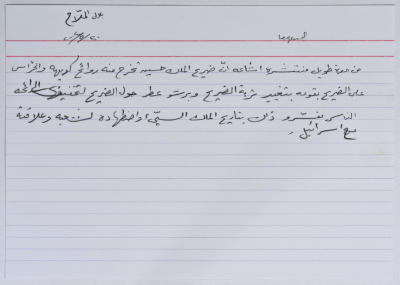 بلال الملاح
من مدة طويلة منتشرة اشاعة انّ ضريح الملك حسين تخرج منه روائح كريهة والحراس
على الضريح يقوموا بتغيير تربة الضريح ويرشو عطر حول الضريح لتخفيف الرائحة
الناس يفسّرو ذلك بتاريخ الملك السيّء واضطهاده لشعبه وعلاقته
مع اسرائيل.